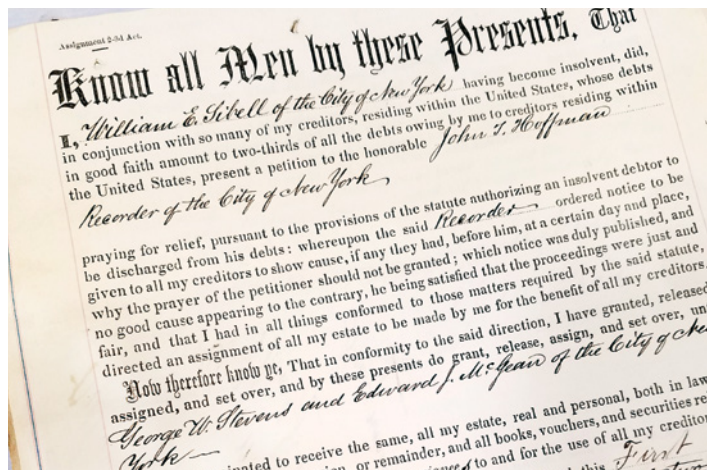 Assignment 2-3d Act.
Know all Men by these Presents, That
I, William E. Sibell of the City of New York having become insolvent, did,
in conjunction with so many of my creditors, residing within the United States, whose debts
in good faith amount to two-thirds of all the debts owing by me to creditors residing within
the United States, present a petition to the honorable John T. Hoffman
Recorder of the City of New York
praying for relief, pursuant to the provisions of the statute authorizing an insolvent debtor to
be discharged from his debts: whereupon the said Recorder ordered notice to be
given to all my creditors to show cause, if any they had, before him, at a certain day and place,
why the prayer of the petitioner should not be granted; which notice was duly published, and
no good cause appearing to the contrary, he being satisfied that the proceedings were just and
fair, and that I had in all things conformed to those matters required by the said statute,
directed an assignment of all my estate to be made by me for the benefit of all my creditors.
Now therefore know ye, That in conformity to the said direction, I have granted, released
assigned, and set over, and by these presents do grant, release, assign, and set over, un
George W. Stevens and Edward J. McGean of the City of Ne
York
nated to receive the same, all my estate, real and personal, both in law
on, or remainder, and all books, vouchers, and securities re
to and for the use of all my creditor
this First